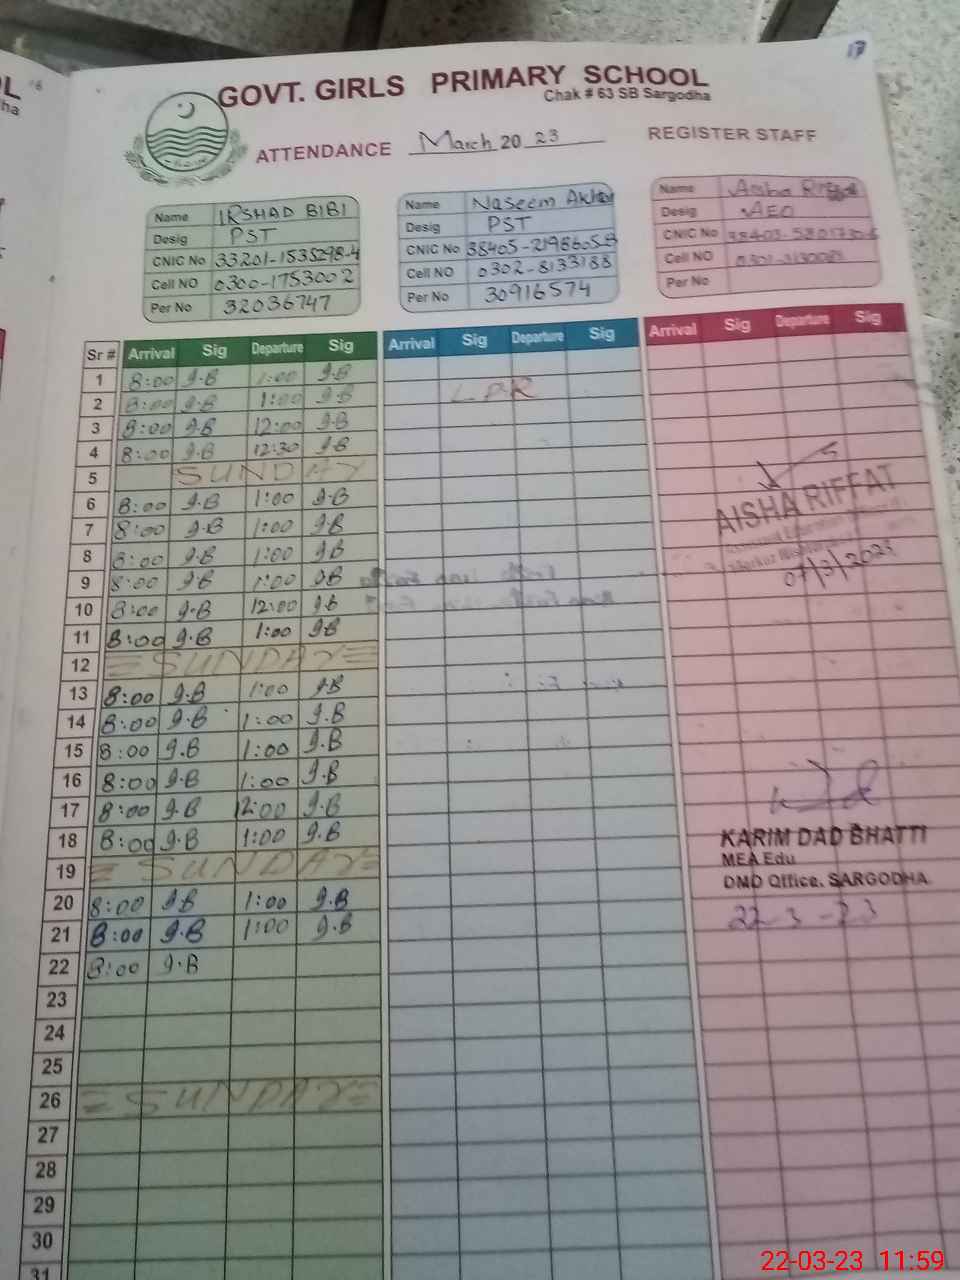 17
GOVT. GIRLS PRIMARY SCHOOL
Chak # 63 SB Sargodha
ATTENDANCE March 2023 REGISTER STAFF
Name IRSHAD BIBI
Desig PST
CNIC No 33201-1535298-4
Cell NO 0300-1753002
Per No 32036747
Name Naseem Akhtar
Desig PST
CNIC No 38405-2198605-8
Cell NO 0302-8133188
Per No 30916574
Name Aisha Riffat
Desig AEO
CNIC No
Cell NO
Per No
Sr # Arrival Sig Departure Sig Arrival Sig Departure Sig Arrival Sig Departure Sig
1 8:00 I.B 1:00 I.B
2 8:00 I.B 1:00 I.B LPR
3 8:00 I.B 12:00 I.B
4 8:00 I.B 12:30 I.B
5 SUNDAY
6 8:00 I.B 1:00 I.B
7 8:00 I.B 1:00 I.B
8 8:00 I.B 1:00 I.B
9 8:00 I.B 1:00 I.B
10 8:00 I.B 12:00 I.B
11 8:00 I.B 1:00 I.B
12 SUNDAY
13 8:00 I.B 1:00 I.B
14 8:00 I.B 1:00 I.B
15 8:00 I.B 1:00 I.B
16 8:00 I.B 1:00 I.B
17 8:00 I.B 12:00 I.B
18 8:00 I.B 1:00 I.B
19 SUNDAY
20 8:00 I.B 1:00 I.B
21 8:00 I.B 1:00 I.B
22 8:00 I.B
23
24
25
26 SUNDAY
27
28
29
30
31
AISHA RIFFAT
07/3/2023
KARIM DAD BHATTI
MEA Edu
DMO Office, SARGODHA
22-3-23
22-03-23 11:59